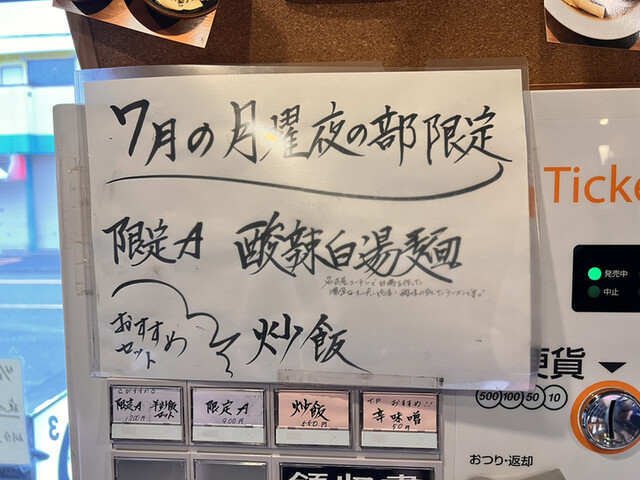 7月の月曜夜の部限定
限定A 酸辣白湯麺
おすすめ
セット
炒飯
Ticke
発売中
中止
硬貨
500 100 50 10
おつり・返却
おすすめ
限定A 半炒飯
セット
1200円
限定A
900円
炒飯
550円
T.P おすすめ!!
辛味噌
50円
領収書